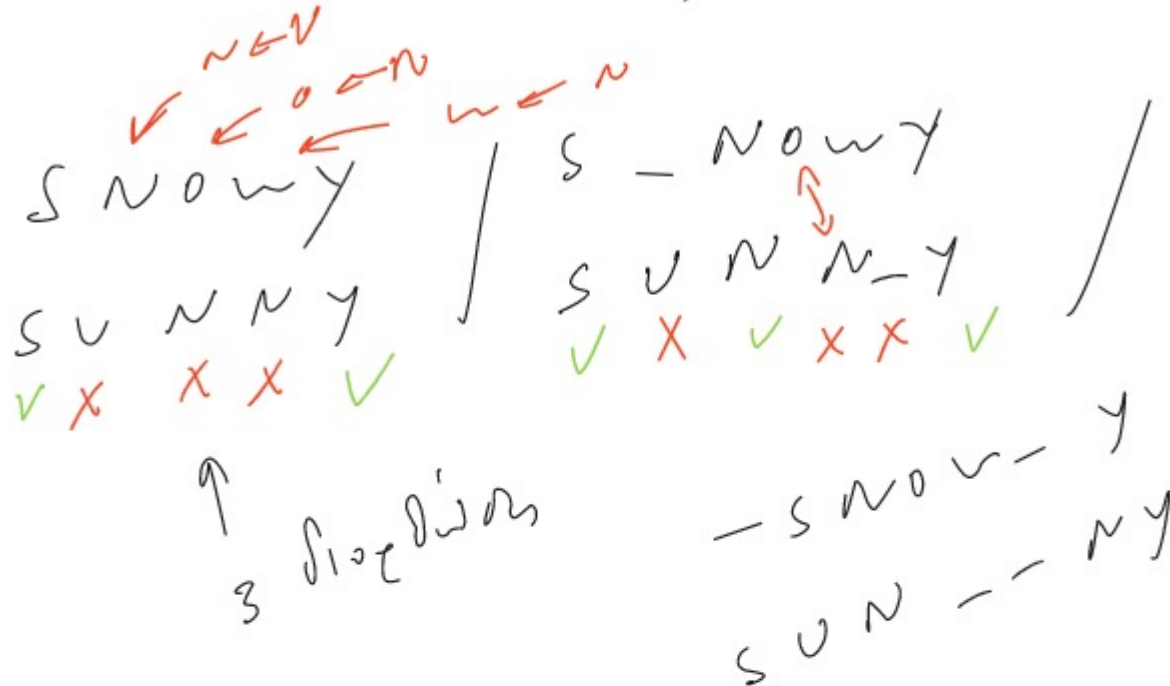 N ← U
O ← N
W ← N
S N O W Y
S U N N Y
✓ X X X ✓
3 διορθώσεις
S _ N O W Y
S U N N _ Y
✓ X ✓ X X ✓
_ S N O W _ Y
S U N _ _ N Y